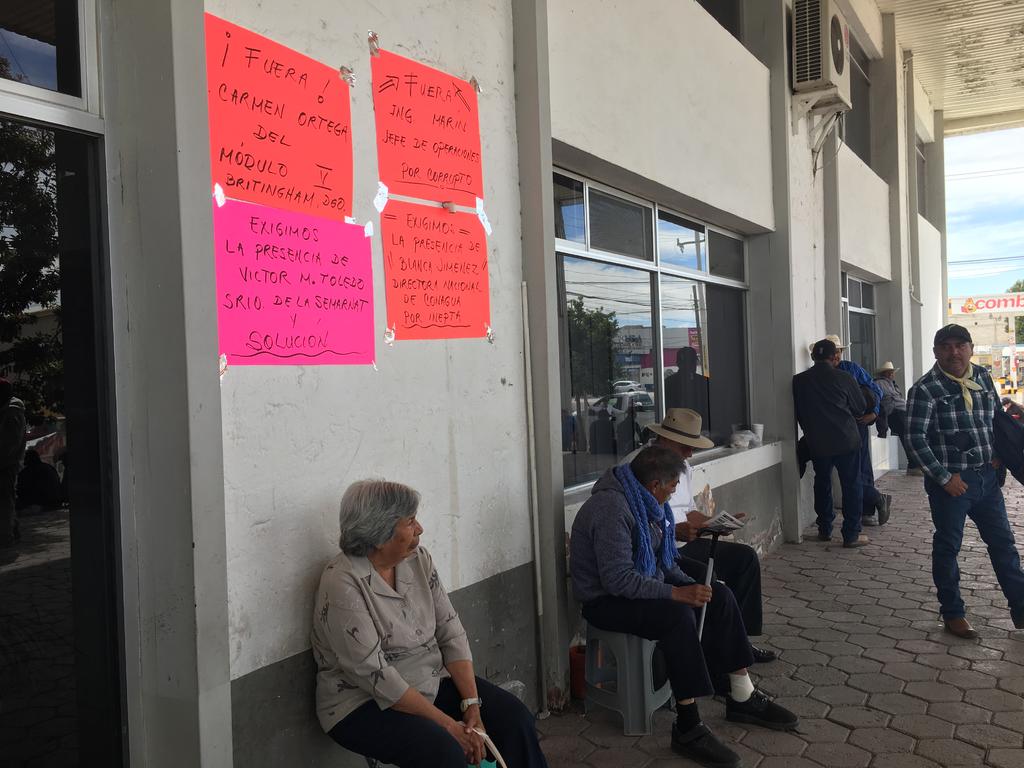 ¡ FUERA !
CARMEN ORTEGA
DEL
MÓDULO V
BRITINGHAM, DGO.
EXIGIMOS
LA PRESENCIA DE
VICTOR M. TOLEDO
SRIO. DE LA SEMARNAT
Y
SOLUCIÓN
FUERA
ING. MARIN
JEFE DE OPERACIONES
POR CORRUPTO
= EXIGIMOS =
LA PRESENCIA DE
"BLANCA JIMENEZ"
DIRECTORA NACIONAL
DE CONAGUA
POR INEPTA
comb